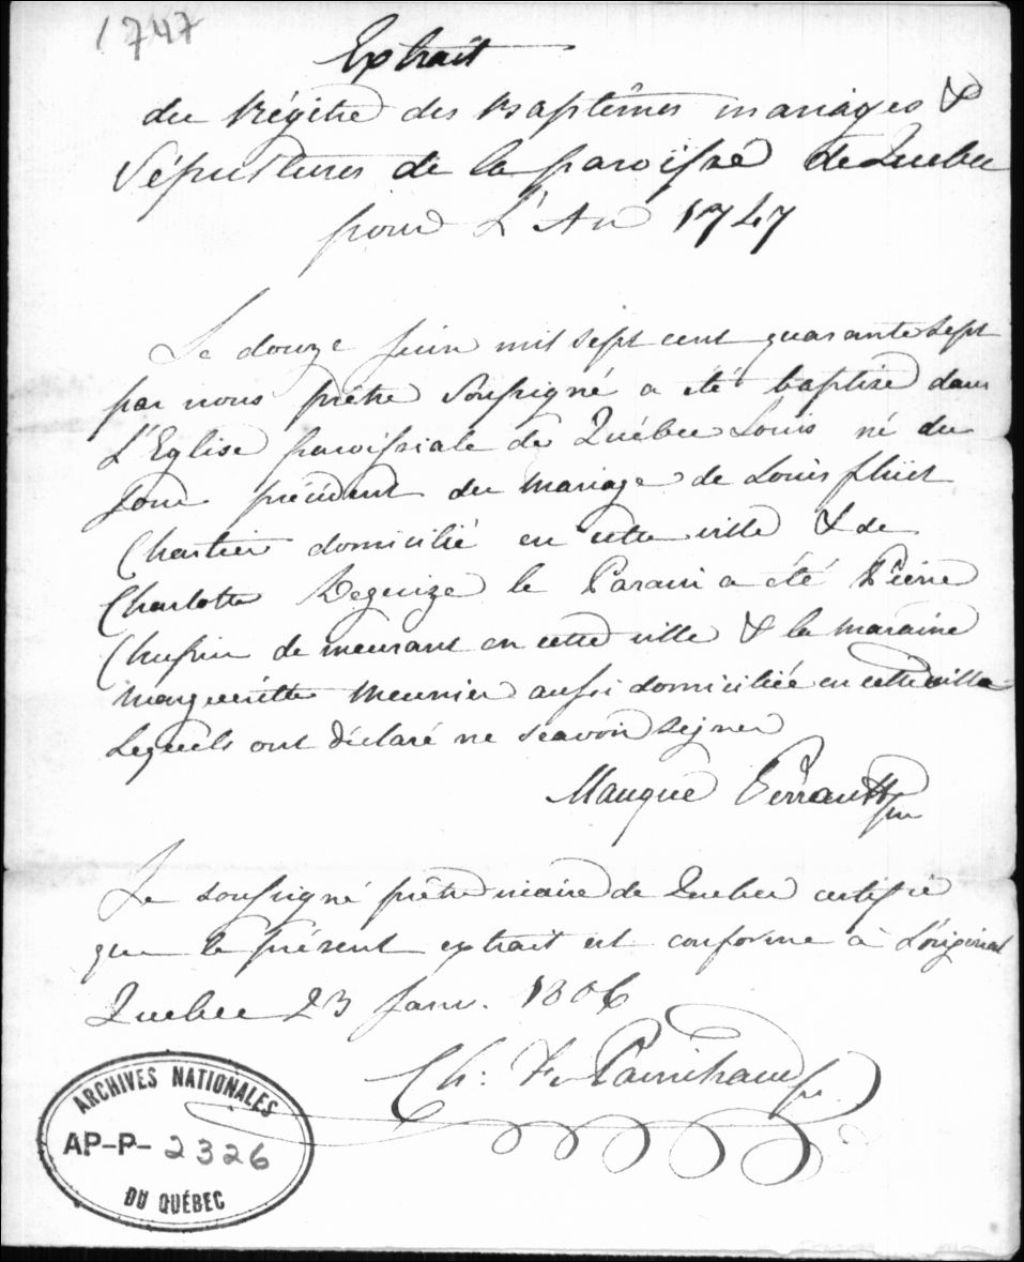 1747
Extrait
du Régitre des Baptêmes mariages &
Sépultures de la paroisse de Quebec
pour L'An 1747
Le douze juin mil sept cent quarante sept
par nous prêtre Soussigné a été baptisé dans
L'Eglise paroissiale de Québec Louis né du
jour précédent du mariage de Louis fluet
Chartier domicilié en cette ville & de
Charlotte Deguize le Parain a été Pierre
Chupin demeurant en cette ville & la maraine
Marguerite Meunier aussi domiciliée en cette ville
Lequels ont déclaré ne sçavoir signer
Perrault
Le soussigné prêtre vicaire de Quebec certifie
que le présent extrait est conforme à L'original
Quebec 23 Janv. 1806
Ch: F. Painchaud
ARCHIVES NATIONALES
AP-P-2326
DU QUÉBEC